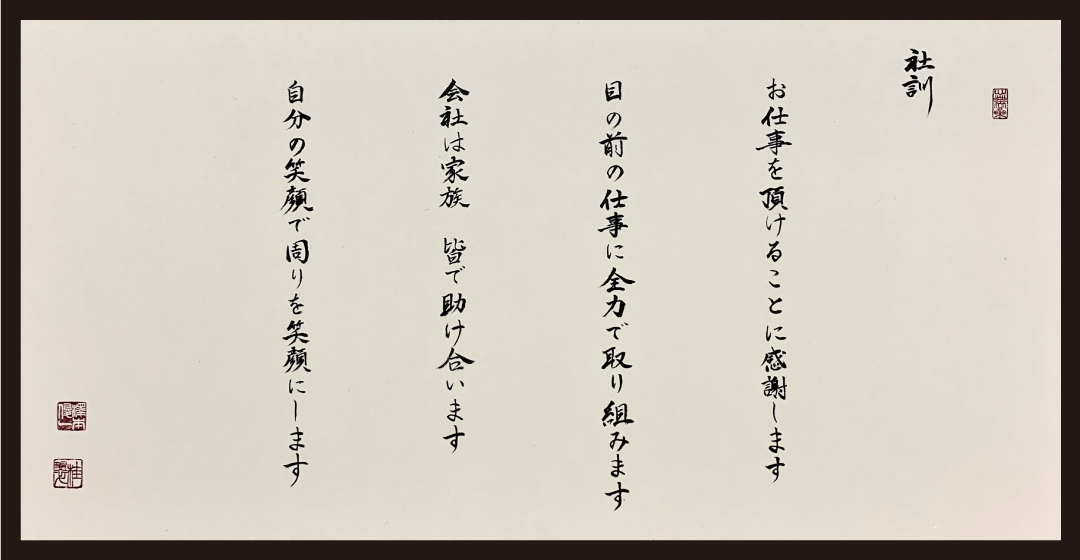 社訓
お仕事を頂けることに感謝します
目の前の仕事に全力で取り組みます
会社は家族　皆で助け合います
自分の笑顔で周りを笑顔にします